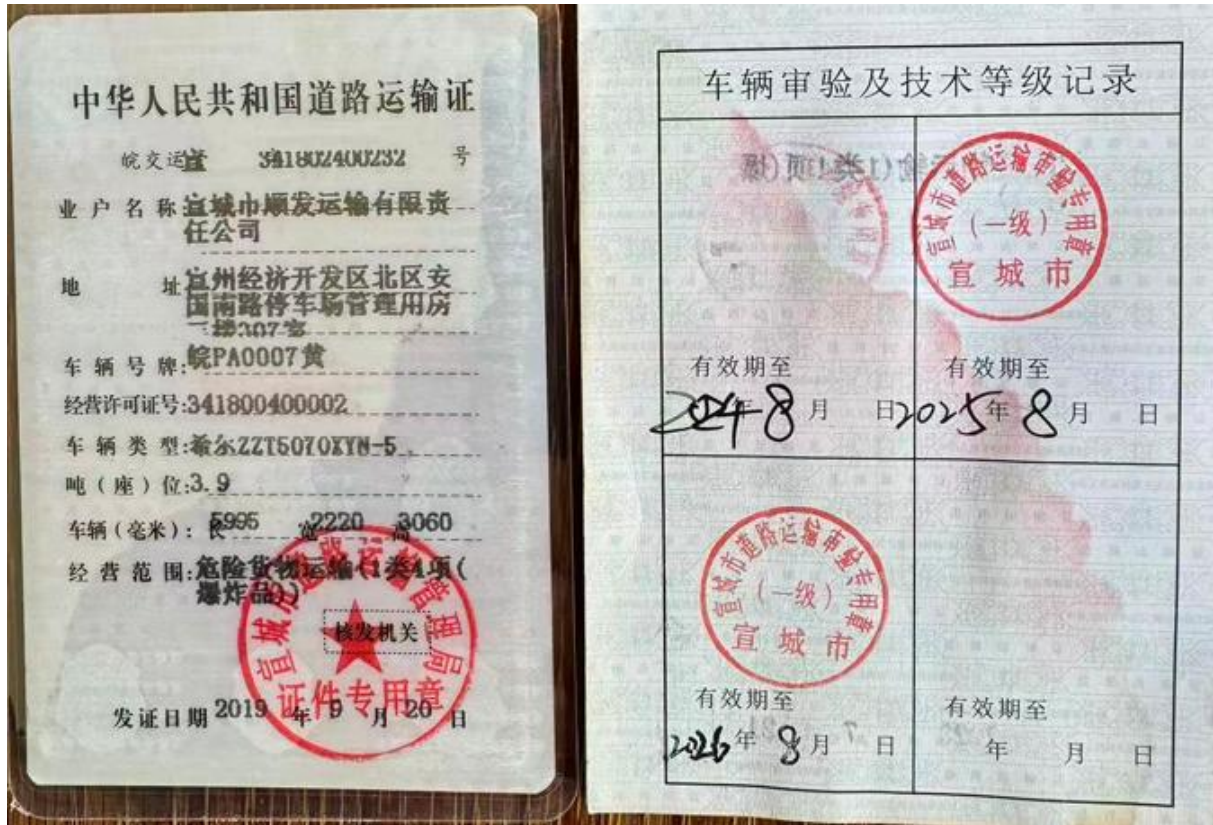 中华人民共和国道路运输证
皖交运 宣 341802400232 号
业户名称:宣城市顺发运输有限责
任公司
地 址:宣州经济开发区北区安
国南路停车场管理用房
二楼307室
车辆号牌:皖PA0007黄
经营许可证号:341800400002
车辆类型:希尔ZZT5070XYN-5
吨(座)位:3.9
车辆(毫米):长 5995 宽 2220 高 3060
经营范围:危险货物运输(1类1项(
爆炸品))
宣城市道路运输管理局
核发机关
证件专用章
发证日期 2019 年 9 月 20 日
车辆审验及技术等级记录
宣城市道路运输审验专用章
(一级)
宣城市
有效期至
2024年 8月 日
有效期至
2025年 8月 日
宣城市道路运输审验专用章
(一级)
宣城市
有效期至
2026年 8月 日
有效期至
年 月 日